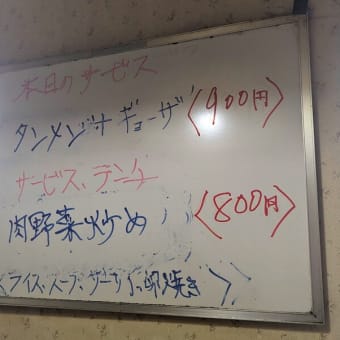 本日のサービス
タンメン サ ギョーザ 〈900円〉
サービス、テンチ
肉野菜炒め 〈800円〉
〈ライス、スープ、 卵焼き〉